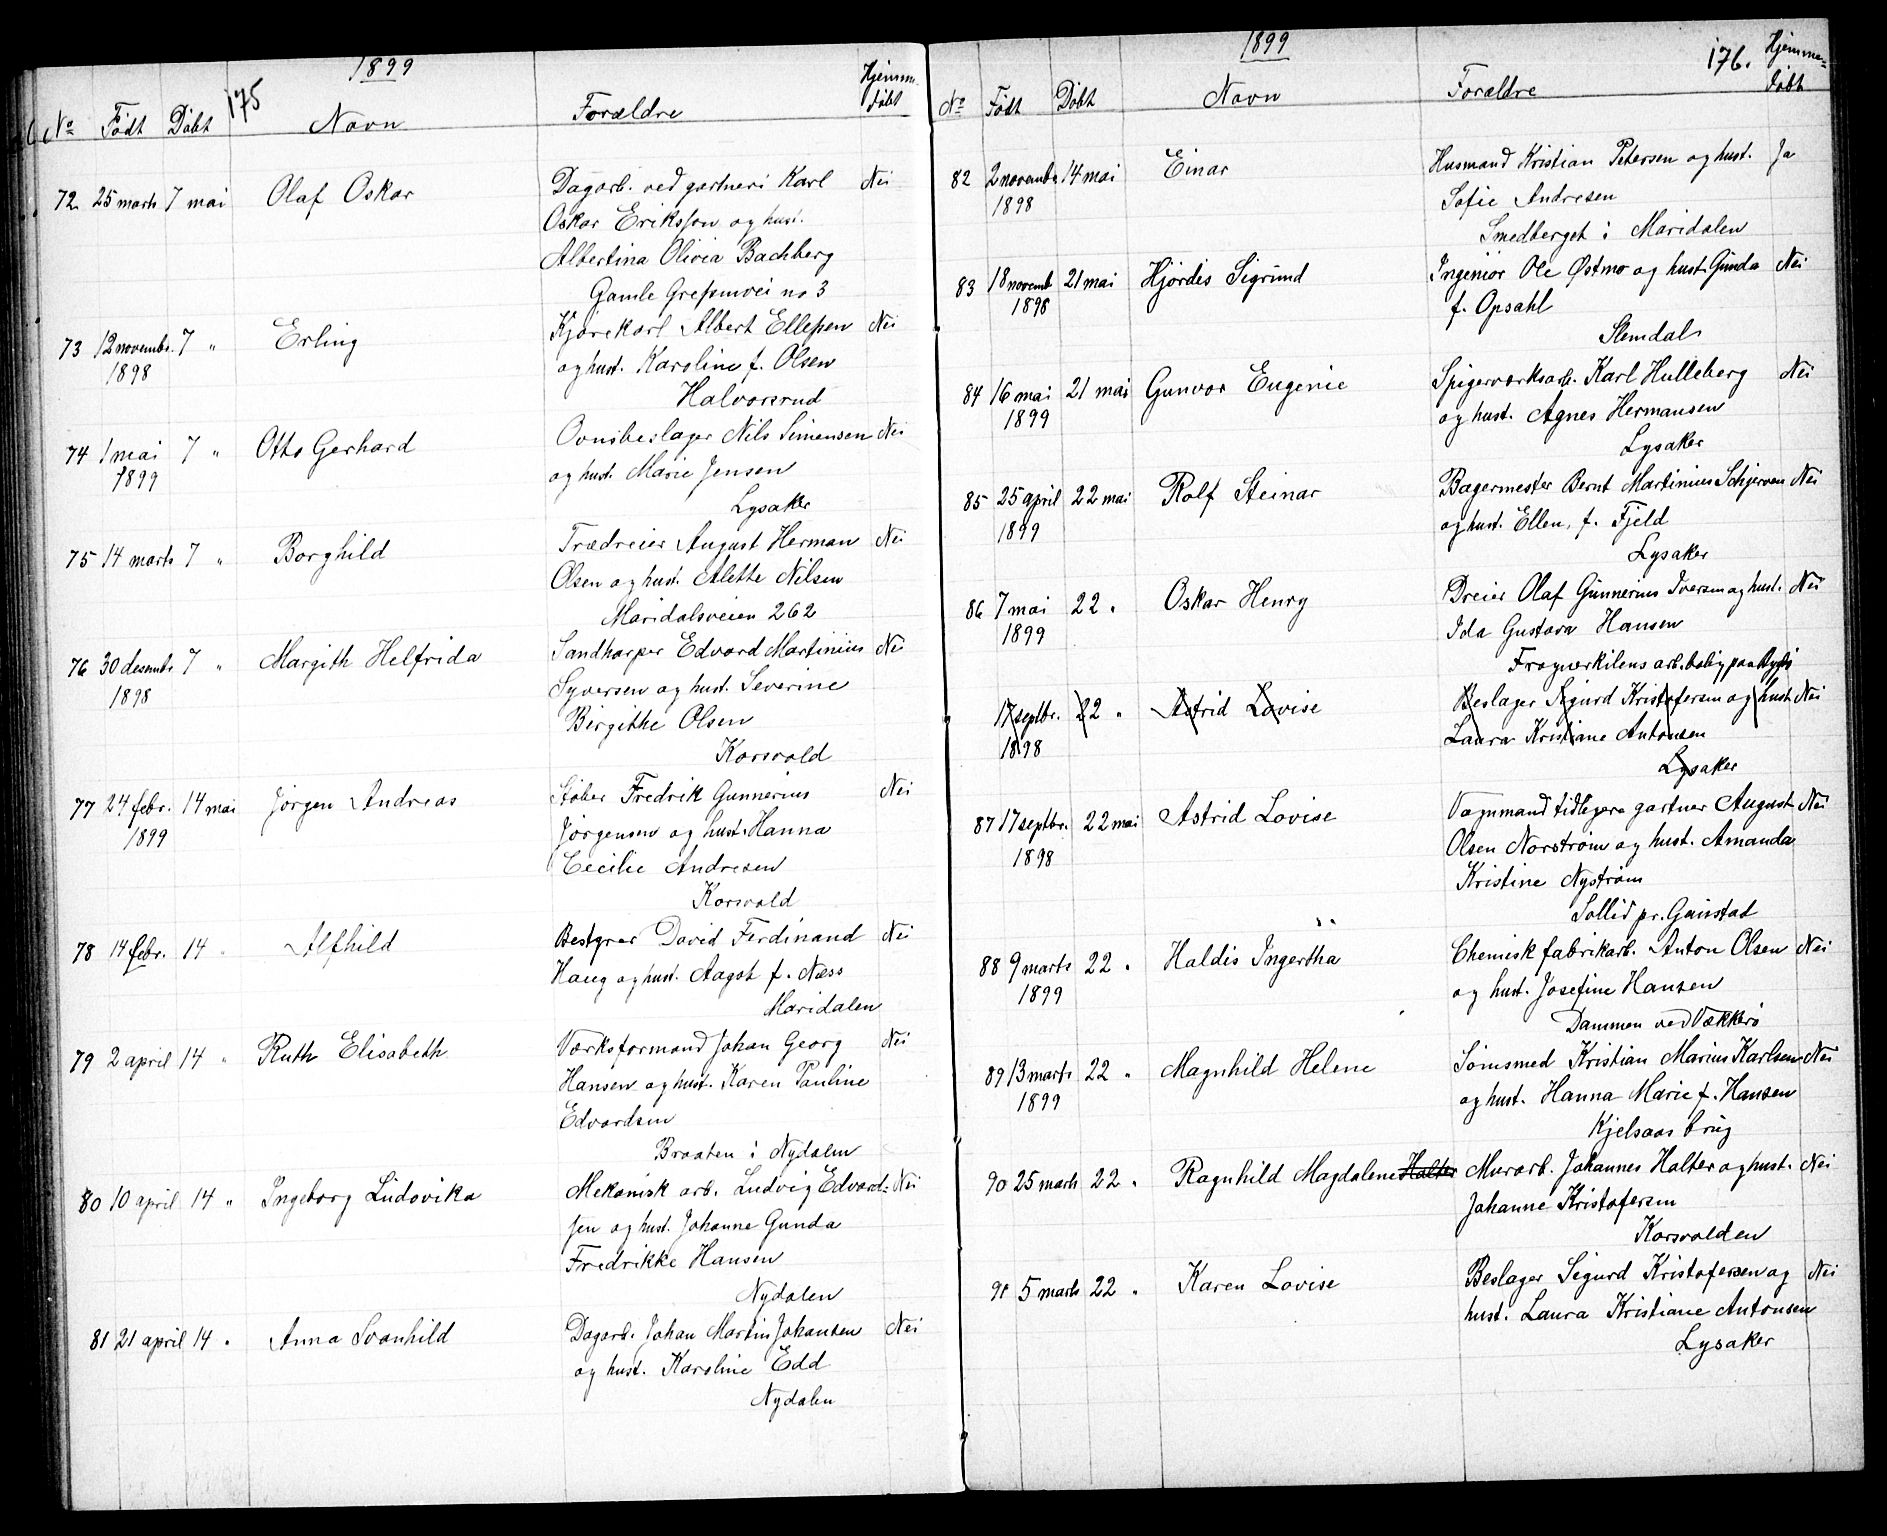 1899
175
No Født Døbt Navn Forældre Hjemmedøbt
72 25 marts 7 mai Olaf Oskar Dagarb. ved gartneri Karl Nei
Oskar Eriksson og hust.
Albertina Olivia Bachberg
Gamle Grefsenvei no 3
73 12 novembr. 7 " Erling Kjørekarl Albert Ellefsen Nei
1898 og hust. Karoline f. Olsen
Halvorsrud
74 1 mai 7 " Otto Gerhard Ovnsbeslager Nils Simensen Nei
1899 og hust. Marie Jensen
Lysaker
75 14 marts 7 " Borghild Trædreier August Herman Nei
Olsen og hust. Alette Nilsen
Maridalsveien 262
76 30 desembr 7 " Margith Helfrida Sandharper Edvard Martinius Nei
1898 Syversen og hust. Severine
Birgithe Olsen
Korsvold
77 24 febr. 14 mai Jørgen Andreas Støber Fredrik Gunnerius Nei
1899 Jørgensen og hust. Hanna
Cecilie Andresen
Korsvold
78 14 febr. 14 " Alfhild Bestyrer David Ferdinand Nei
Haug og hust. Aagot f. Næss
Maridalen
79 2 april 14 " Ruth Elisabeth Værksformand Johan Georg Nei
Hansen og hust. Karen Pauline
Edvardsen
Braaten i Nydalen
80 10 april 14 " Ingeborg Ludovika Mekanisk arb. Ludvig Edvard- Nei
sen og hust. Johanne Gunda
Fredrikke Hansen
Nydalen
81 21 april 14 " Anna Svanhild Dagarb. Johan Martin Johansen Nei
og hust. Karoline Edd
Nydalen
1899
176.
No Født Døbt Navn Forældre Hjemme-døbt
82 2 novembr 14 mai Einar Husmand Kristian Petersen og hust. Ja
1898 Sofie Andresen
Smedberget i Maridalen
83 18 novemb 21 mai Hjørdis Sigrund Ingeniør Ole Østmo og hust. Gunda Nei
1898 f. Opsahl
Slemdal
84 16 mai 21 mai Gunvor Eugenie Spigerværksarb. Karl Hulleberg Nei
1899 og hust. Agnes Hermansen
Lysaker
85 25 april 22 mai Rolf Steinar Bagermester Bernt Martinius Schjerven Nei
1899 og hust. Ellen, f. Fjeld
Lysaker
86 7 mai 22 " Oskar Henry Dreier Olaf Gunnerius Iversen og hust. Nei
1899 Ida Gustava Hansen
Frognerkilens arb.bolig paa Bygdø
17 septbr. 22 " Astrid Lovise Beslager Sigurd Kristofersen og hust. Nei
1898 Laura Kristiane Antonsen
Lysaker
87 17 septbr. 22 mai Astrid Lovise Vognmand tidligere gartner August Nei
1898 Olsen Norstrøm og hust. Amanda
Kristine Nystrøm
Sollid pr. Gaustad
88 9 marts 22 " Haldis Ingertha Chemisk fabrikarb. Anton Olsen Nei
1899 og hust. Josefine Hansen
Dammen ved Vækkerø
89 13 marts 22 " Magnhild Helene Sømsmed Kristian Marius Karlsen Nei
1899 og hust. Hanna Marie f. Hansen
Kjelsaas brug
90 25 marts 22 " Ragnhild Magdalene Halter Murarb. Johannes Halter og hust. Nei
Johanne Kristofersen
Korsvolden
91 5 marts 22 " Karen Lovise Beslager Sigurd Kristofersen og Nei
hust. Laura Kristiane Antonsen
Lysaker